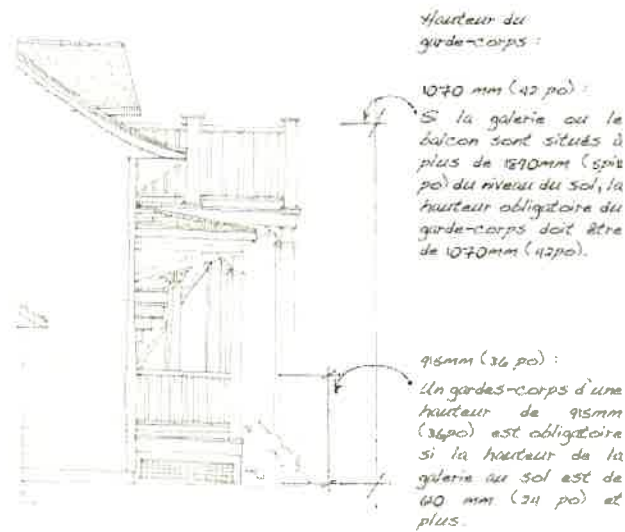 Hauteur du
garde-corps :
1070 mm (42 po) :
Si la galerie ou le
balcon sont situés à
plus de
po) du niveau du sol, la
hauteur obligatoire du
garde-corps doit être
de 1070mm (42po).
915mm (36 po) :
Un gardes-corps d'une
hauteur de 915mm
(36po) est obligatoire
si la hauteur de la
galerie au sol est de
610 mm (24 po) et
plus.